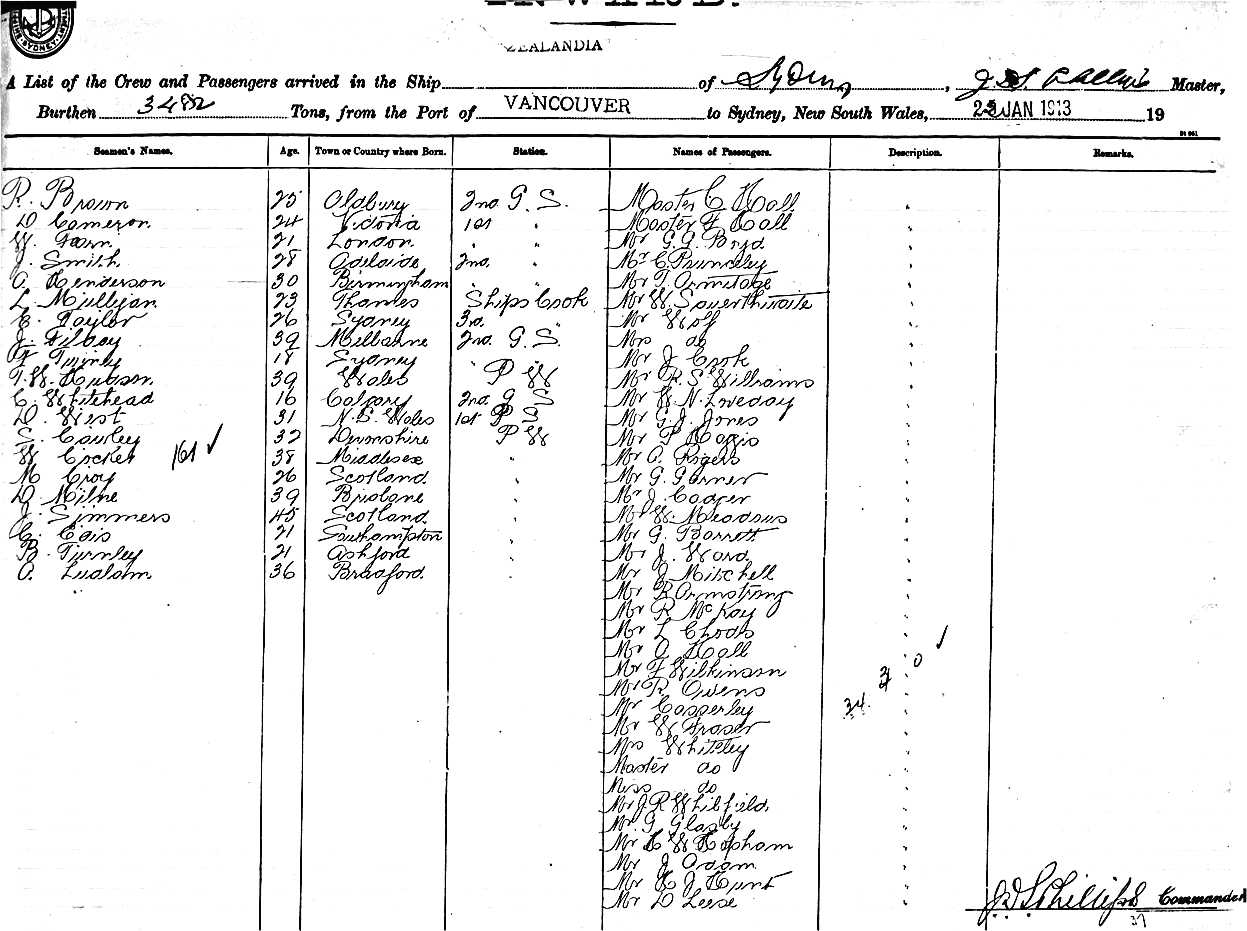 SYDNEY
INWARD.
ZEALANDIA
A List of the Crew and Passengers arrived in the Ship of Sydney, J. D. S. Phillips Master,
Burthen 3482 Tons, from the Port of VANCOUVER to Sydney, New South Wales, 25 JAN 1913 19
Seamen's Names. Age. Town or Country where Born. Station. Names of Passengers. Description. Remarks.
R. Brown 25 Oldbury 2nd G. S. Master C Hall
D Cameron 24 Victoria 1st " " Master F Hall
W. 21 London " " Mr G. G. Boyd
J. Smith 28 Adelaide 2nd " Mr C
O Henderson 30 Birmingham " " Mr T. Ormitage
L Mullijan 23 Thames Ships Cook Mr W.
E. Taylor 26 Sydney 3rd " Mr Wolf
J. Filbay 39 Melbourne 2nd G. S. Mrs do
F 18 Sydney " " Mr J Cook
T. W. Hubson 39 Wales P W Mr R. S Williams
C. Whitehead 16 Calgary 2nd G S Mr W. N. Loveday
D. West 31 N. S. Wales 1st P S Mr G. J. Jones
S. Cawley 32 Devonshire P W Mr F
W Cocker 38 Middlesex " Mr A. Rogers
161 ✓
M Croy 26 Scotland " Mr G. Garner
D. Milne 39 Brisbane " Mr J Cooper
J. Simmers 45 Scotland " Mr W. Meadows
C. Edis 21 Southampton " Mr G. Barrett
B. Turnley 21 Ashford " Mr J. Ward
O. Ludlam 36 Bradford " Mr J Mitchell
Mr R Armstrong
Mr R McKay
Mr L
Mr A Hall
Mr F Wilkinson
Mr R Owens
Mr Casperley
Mr W Fraser
Mrs Whiteley
Master do
Miss do
Mr J. R Whitfield
Mr G Glasby
Mr H W Hapham
Mr J Adam
Mr H J Hunt
Mr D Leese
34. 34 0 ✓
J D S Phillips Commander
37